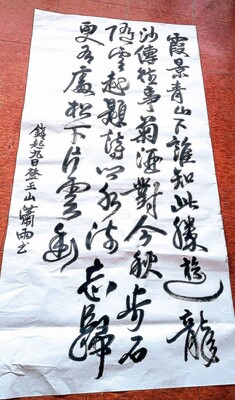 霞景青山下誰知此勝遊龍
沙傳往事菊酒對今秋步石
隨雲起題詩向水流忘歸
更有處松下片雲幽
錢起九日登玉山 蕭雨书